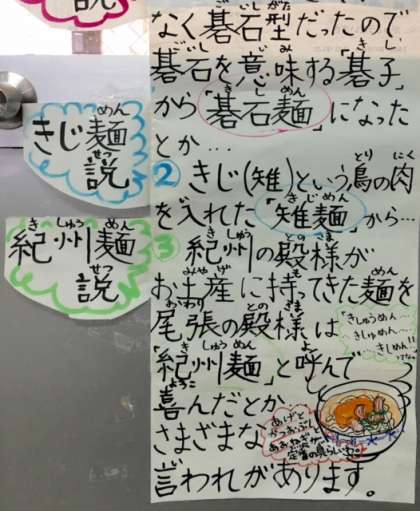 説
きじ麺
説
紀州麺
説
なく碁石型だったので、
碁石を意味する「碁子」
から「碁石麺」になった
とか…
② きじ(雉)という鳥の肉
を入れた「雉麺」から…
③ 紀州の殿様が
お土産に持ってきた麺を
尾張の殿様は
「紀州麺」と呼んで
喜んだとか
さまざまな
言われがあります。
「きしゅうめん…
きしゅめん…
きしめん!!
あげと
かつおぶしと
あおねぎが
定番の具らしいわ。